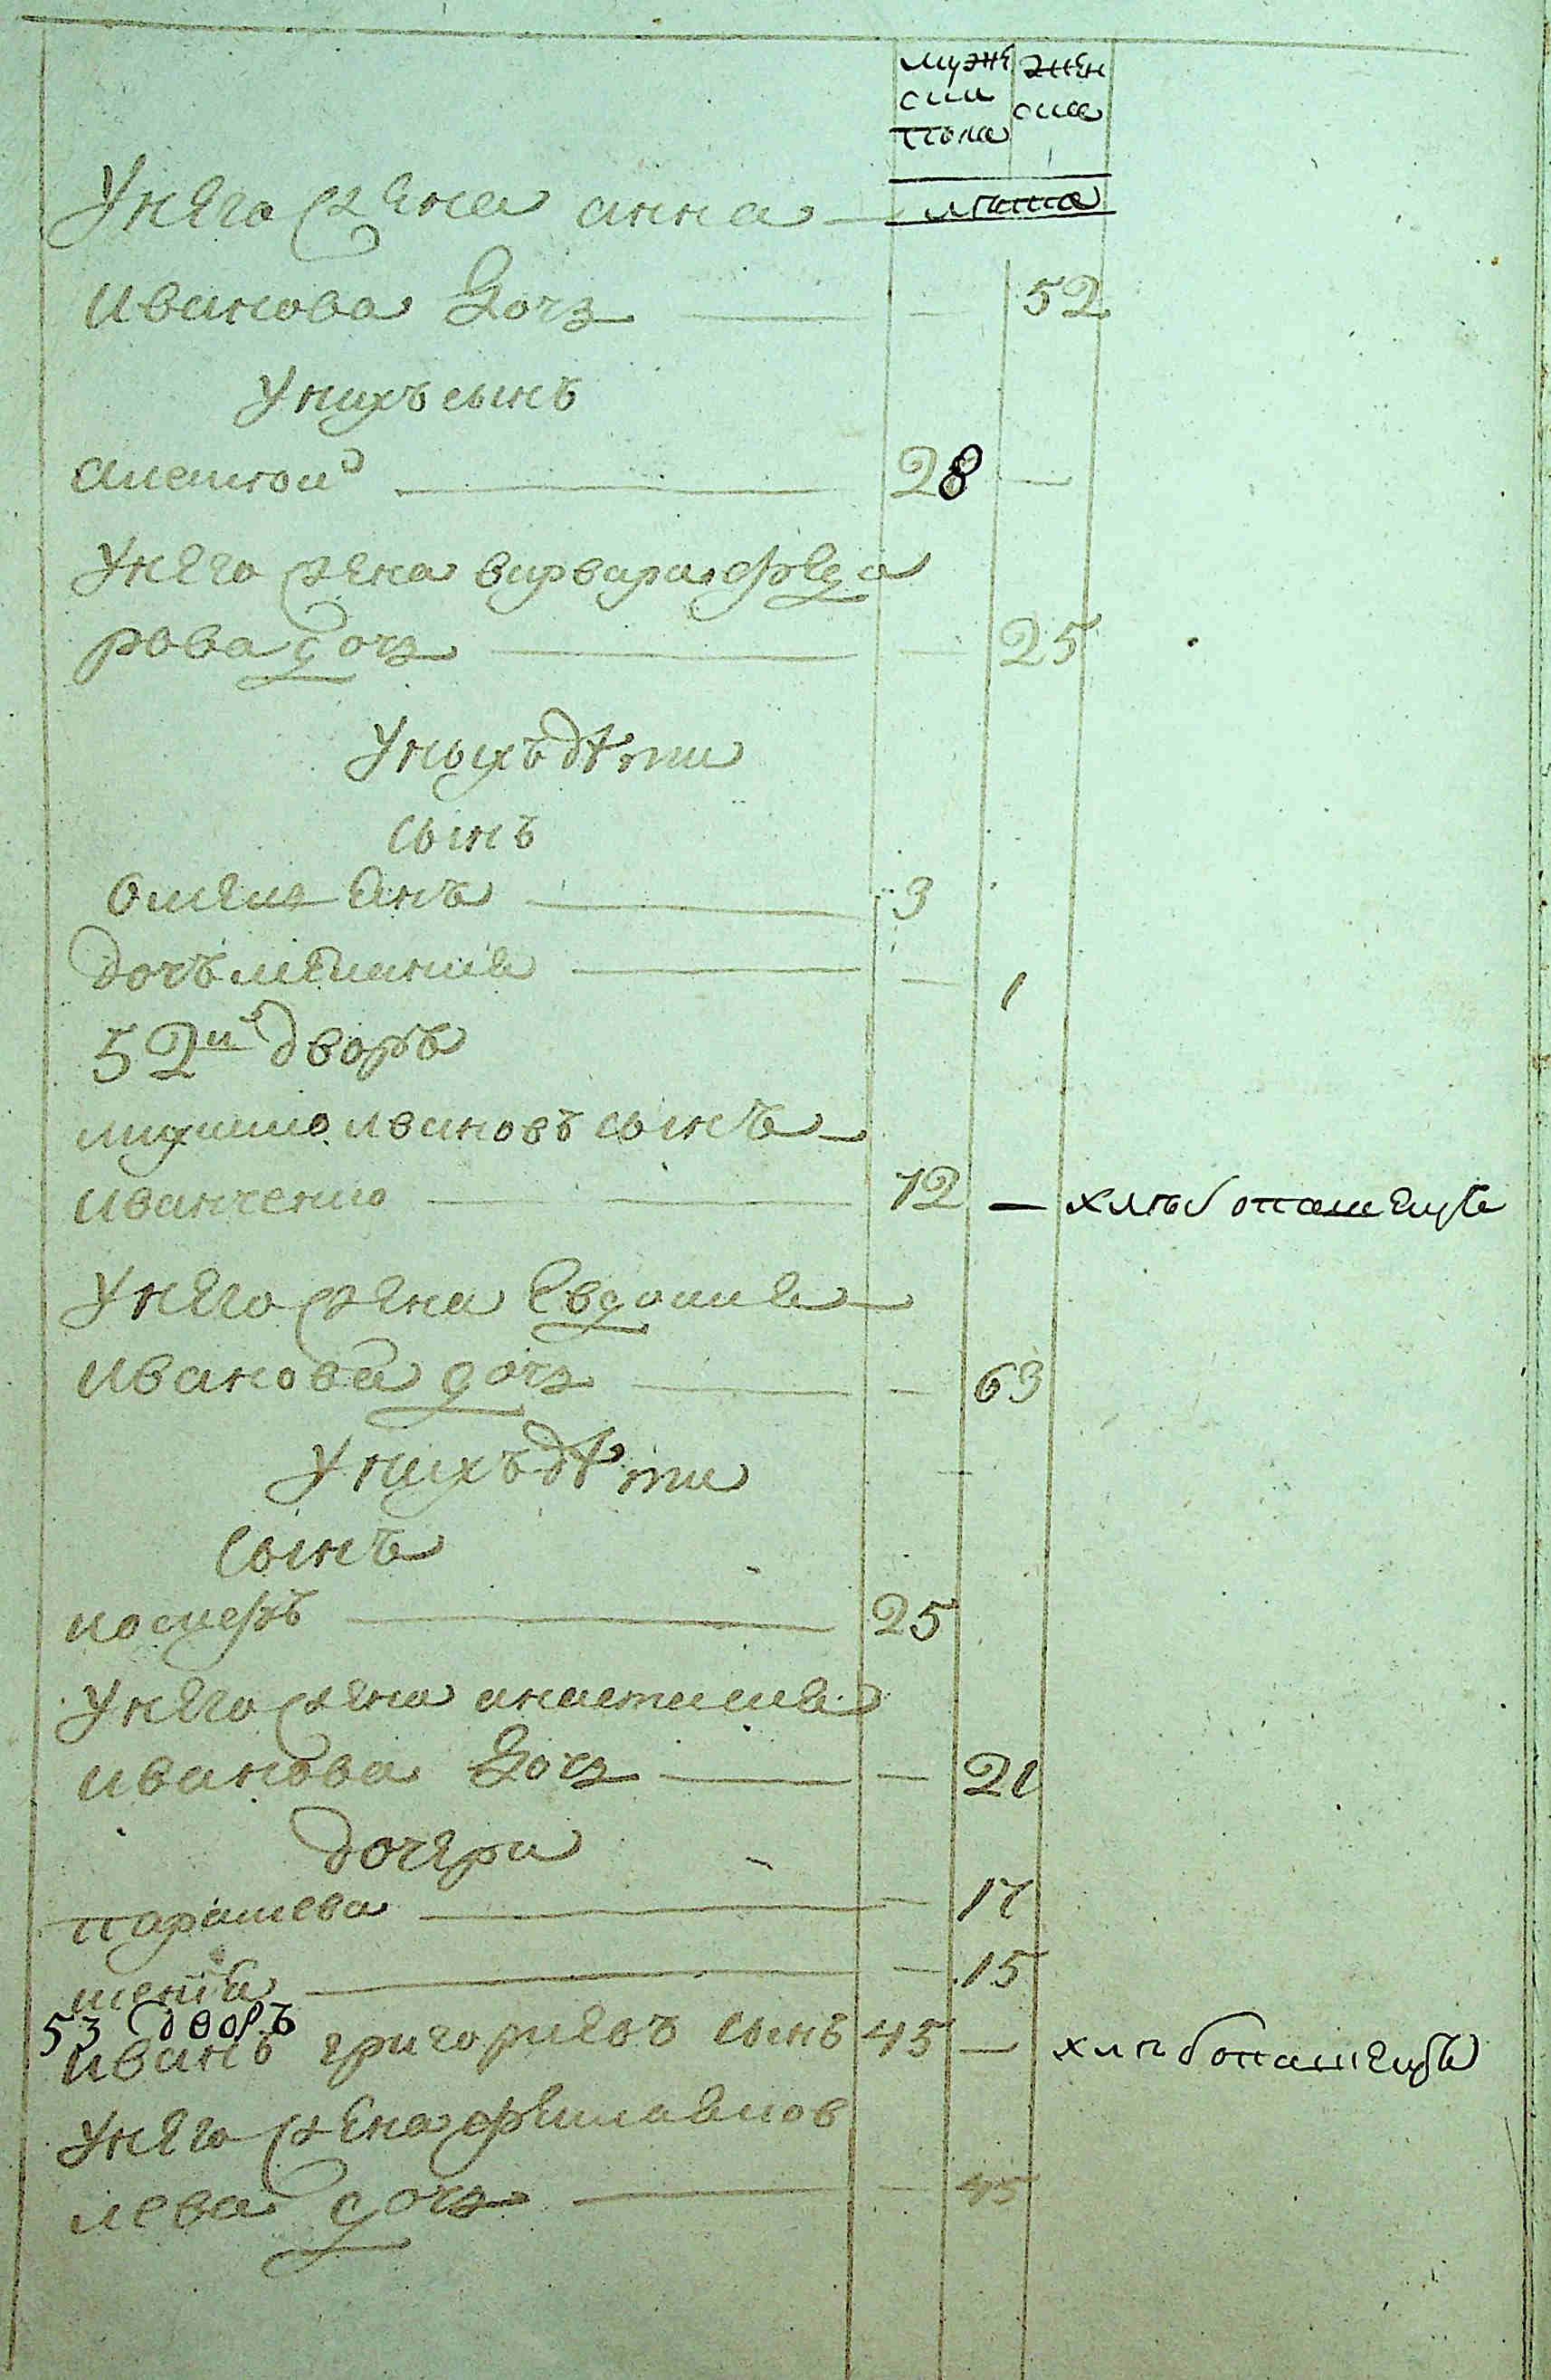 муже жен
ски ска
пола
лѣта
Унего жена анна —
иванова дочь — — 52
Унихъ сынъ
алексѣй — 28 —
Унего жена варвара федо
рова дочь — — 25
Уныхъ дѣти
сынъ
Омелиянъ — 3
дочь мелания — — 1
52й дворъ
михаило ивановъ сынъ —
иванченко — 72 — хлѣбопашецъ
Унего жена Евдокия —
иванова дочь — — 63
Унихъ дѣти
сынъ
иосифъ — 25
Унего жена анастасия
иванова дочь — — 21
дочери
парасква — — 17
— — 15
53 дворъ
иванъ григориевъ сынъ 45 — хлѣбопашецъ
Унего жена яков
лева дочь — — 45